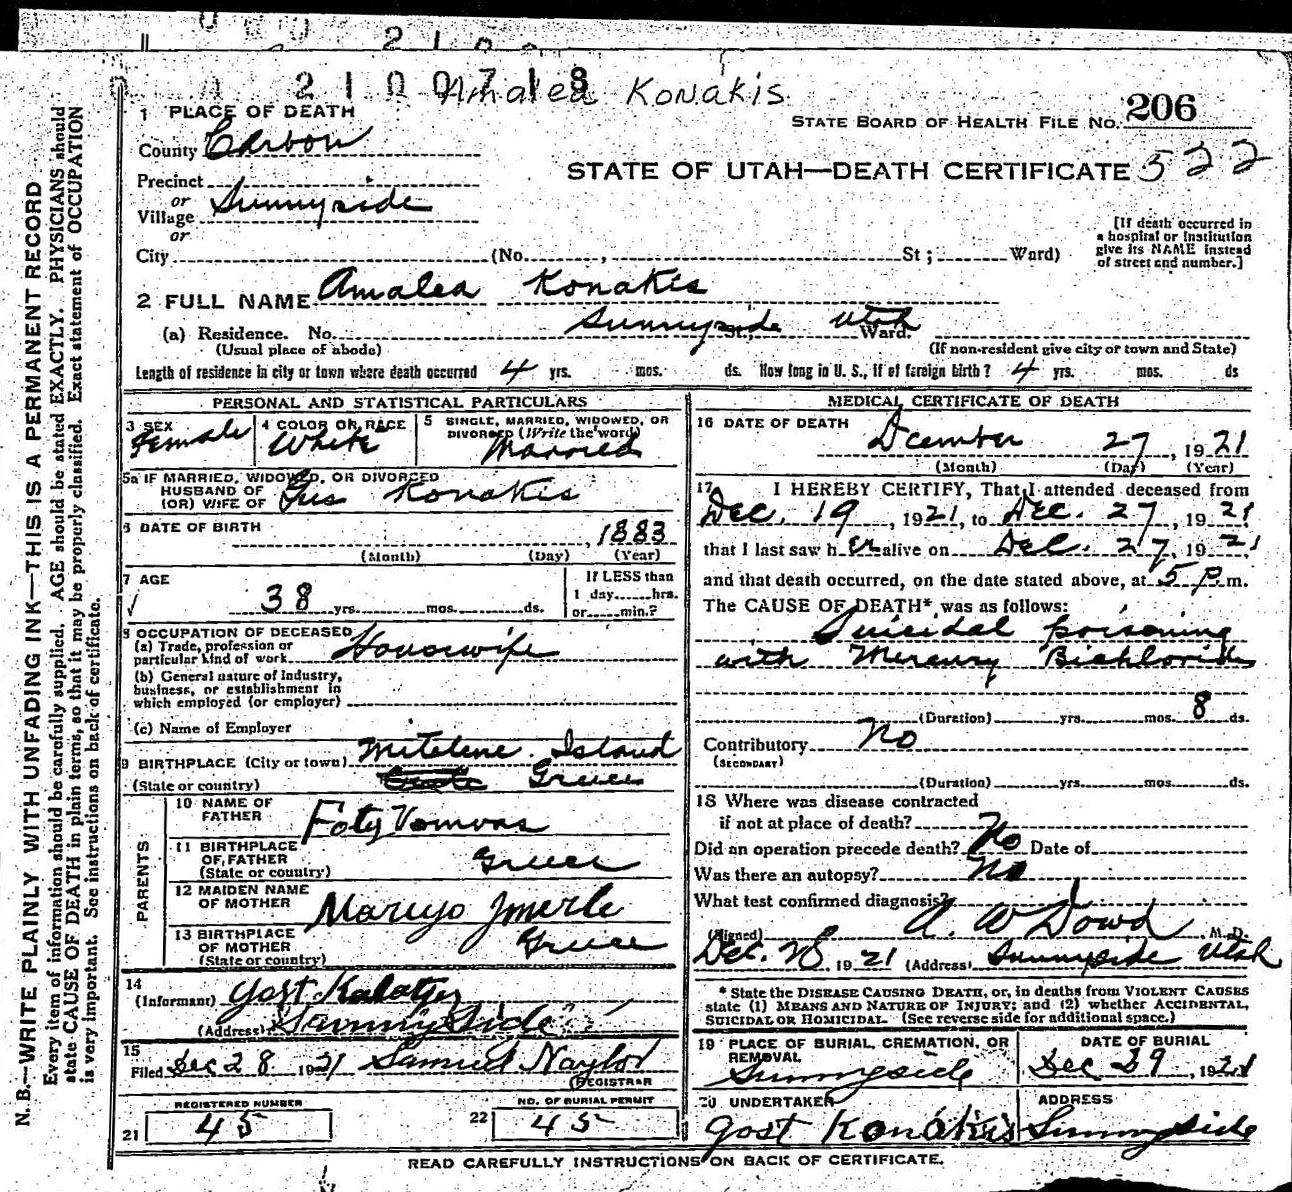 2100718
Amalea Konakis
1 PLACE OF DEATH
STATE BOARD OF HEALTH FILE NO. 206
County Carbon
STATE OF UTAH—DEATH CERTIFICATE 522
Precinct
or
Village Sunnyside
or
City (No. , St ; Ward)
[If death occurred in
a hospital or institution
give its NAME instead
of street and number.]
2 FULL NAME Amalea Konakis
(a) Residence. No. Sunnyside St., Utah Ward.
(Usual place of abode) (If non-resident give city or town and State)
Length of residence in city or town where death occurred 4 yrs. mos. ds. How long in U. S., if of foreign birth? 4 yrs. mos. ds
PERSONAL AND STATISTICAL PARTICULARS
3 SEX Female
4 COLOR OR RACE White
5 SINGLE, MARRIED, WIDOWED, OR
DIVORCED (Write the word) Married
5a IF MARRIED, WIDOWED, OR DIVORCED
HUSBAND OF
(OR) WIFE OF Gus Konakis
6 DATE OF BIRTH , 1883
(Month) (Day) (Year)
7 AGE 38 yrs. mos. ds.
If LESS than
1 day hrs.
or min.?
8 OCCUPATION OF DECEASED
(a) Trade, profession or
particular kind of work Housewife
(b) General nature of Industry,
business, or establishment in
which employed (or employer)
(c) Name of Employer
9 BIRTHPLACE (City or town) Mitelene Island
(State or country) Greece
PARENTS
10 NAME OF
FATHER Foty Vomvas
11 BIRTHPLACE
OF FATHER
(State or country) Greece
12 MAIDEN NAME
OF MOTHER Mariyo
13 BIRTHPLACE
OF MOTHER
(State or country) Greece
14
(Informant) Gost
(Address) Sunnyside
15
Filed Dec 28 1921 Samuel Naylor
REGISTRAR
REGISTERED NUMBER
21 45
NO. OF BURIAL PERMIT
22 45
MEDICAL CERTIFICATE OF DEATH
16 DATE OF DEATH
Dcember 27, 1921
(Month) (Day) (Year)
17 I HEREBY CERTIFY, That I attended deceased from
Dec. 19, 1921, to Dec. 27, 1921
that I last saw h er alive on Dec. 27, 1921
and that death occurred, on the date stated above, at 5 p m.
The CAUSE OF DEATH* was as follows:
Suicidal poisoning
with Mercury Bichloride
(Duration) yrs. mos. 8 ds.
Contributory No
(SECONDARY)
(Duration) yrs. mos. ds.
18 Where was disease contracted
if not at place of death?
Did an operation precede death? No Date of
Was there an autopsy? No
What test confirmed diagnosis?
(Signed) A. W Dowd, M. D.
Dec. 28, 1921 (Address) Sunnyside Utah
* State the DISEASE CAUSING DEATH, or, in deaths from VIOLENT CAUSES
state (1) MEANS AND NATURE OF INJURY; and (2) whether ACCIDENTAL,
SUICIDAL OR HOMICIDAL. (See reverse side for additional space.)
19 PLACE OF BURIAL, CREMATION, OR
REMOVAL
Sunnyside
DATE OF BURIAL
Dec 29, 1921
20 UNDERTAKER
Gost Konakis
ADDRESS
Sunnyside
READ CAREFULLY INSTRUCTIONS ON BACK OF CERTIFICATE.
N. B.—WRITE PLAINLY WITH UNFADING INK—THIS IS A PERMANENT RECORD
Every item of information should be carefully supplied. AGE should be stated EXACTLY. PHYSICIANS should
state CAUSE OF DEATH in plain terms, so that it may be properly classified. Exact statement of OCCUPATION
is very important. See instructions on back of certificate.